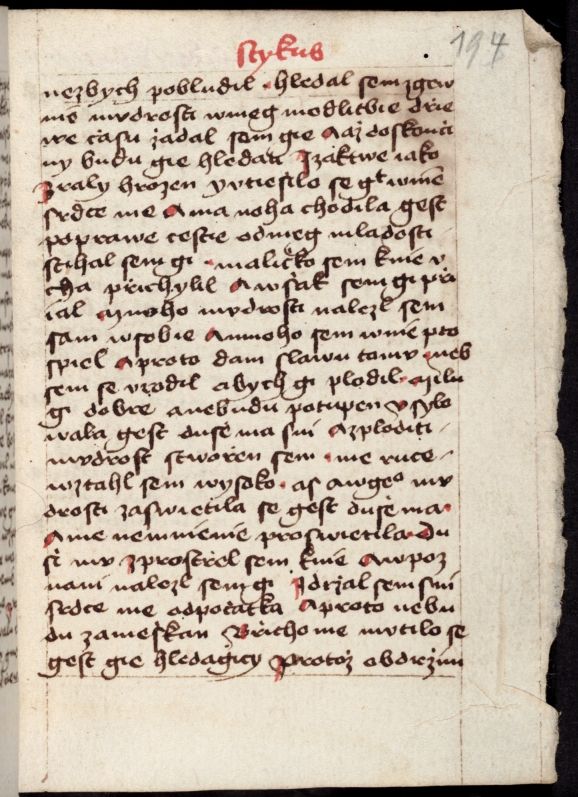 stykus
194
nezbych pobludil hledal sem zgew
nie mudrosti wmeg modlitbie drie
we casu zadal sem gie Aaz dokonci
ny budu gie hledati Izaktwe iako
Zraly hrozen yutiessilo se gt wnie
srdce me A ma noha chodila gest
poprawe cestie odmeg mladosti
stihal sem gi malicko sem knie v
cha prichylil Awssak sem gi pri
ial Amnoho mudrosti nalezl sem
sam wsobie Amnoho sem wnie pro
spiel Aproto dam slawu tomu neb
sem se vrodil abych gi plodil milu
gi dobre anebudu potupen Vsylo
wala gest dusse ma sni Azploditi
mudrost stworen sem me ruce
wztahl sem wysoko as awgeo mu
drosti zaswietila se gest dusse ma
Ame nemnienie proswietila du
ssi mu Zprostrel sem knie Awpoz
nani nalezl sem gi Idrzal sem sni
srdce me odpocatka Aproto nebu
du zamesskan Bricho me mutilo se
gest gie hledagicy Protoz obdrzim